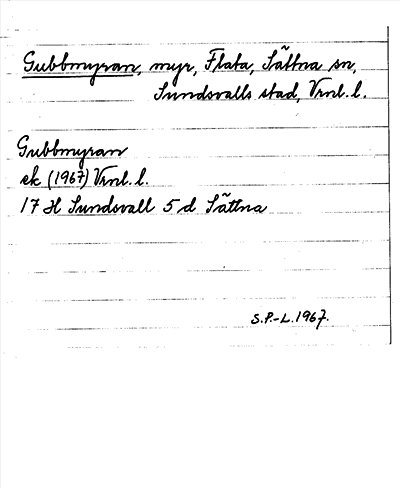 Gubbmyran, myr, Flata, Sättna sn,
Sundsvalls stad, Vrnl. l.
Gubbmyran
ek (1967) Vrnl. l.
17 H Sundsvall 5 d Sättna
S.P.-L. 1967.